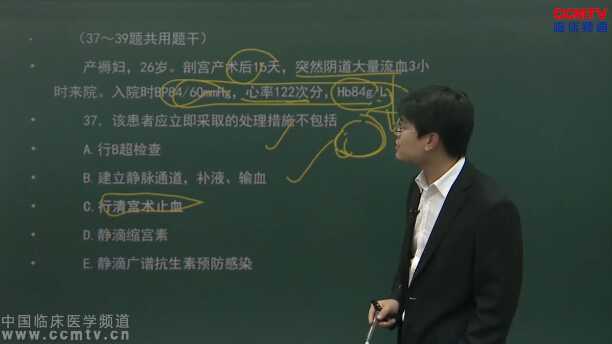 CCMTV
临床频道
（37～39题共用题干）
产褥妇，26岁。剖宫产术后15天，突然阴道大量流血3小
时来院。入院时BP84/60mmHg，心率122次分，Hb84g L
37. 该患者应立即采取的处理措施不包括
A. 行B超检查
B. 建立静脉通道，补液、输血
C. 行清宫术止血
D. 静滴缩宫素
E. 静滴广谱抗生素预防感染
中国临床医学频道
www.ccmtv.cn